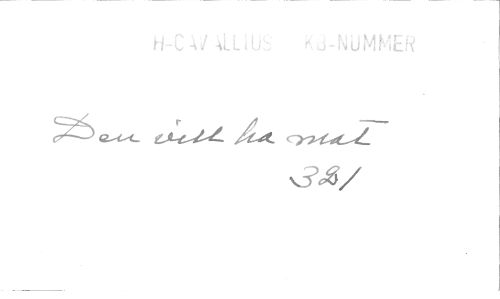 H-CAVALLIUS KB-NUMMER
Den vill ha mat
321